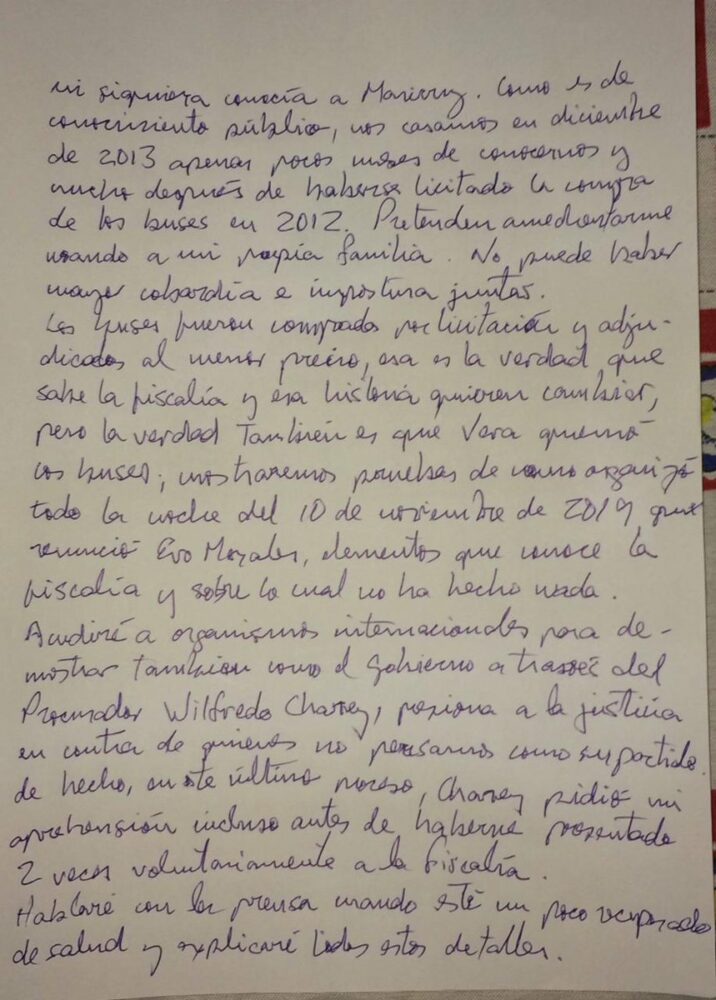 ni siquiera conocía a Maricruz. Como es de
conocimiento público, nos casamos en diciembre
de 2013 apenas pocos meses de conocernos y
mucho después de haberse licitado la compra
de los buses en 2012. Pretenden amedrentarme
usando a mi propia familia. No puede haber
mayor cobardía e impostura juntas.
Los buses fueron comprados por licitación y adju-
dicados al menor precio, esa es la verdad que
sabe la fiscalía y esa historia quieren cambiar,
pero la verdad también es que Vera quemó
los buses; mostraremos pruebas de como organizó
todo la noche del 10 de noviembre de 2019 que
renunció Evo Morales, elementos que conoce la
fiscalía y sobre lo cual no ha hecho nada.
Acudiré a organismos internacionales para de-
mostrar también como el gobierno a través del
Procurador Wilfredo Chavez, presiona a la justicia
en contra de quienes no pensamos como su partido.
de hecho, en este último proceso, Chavez pidió mi
aprehensión incluso antes de haberme presentado
2 veces voluntariamente a la fiscalía.
Hablaré con la prensa cuando esté un poco recuperado
de salud y explicaré todos estos detalles.